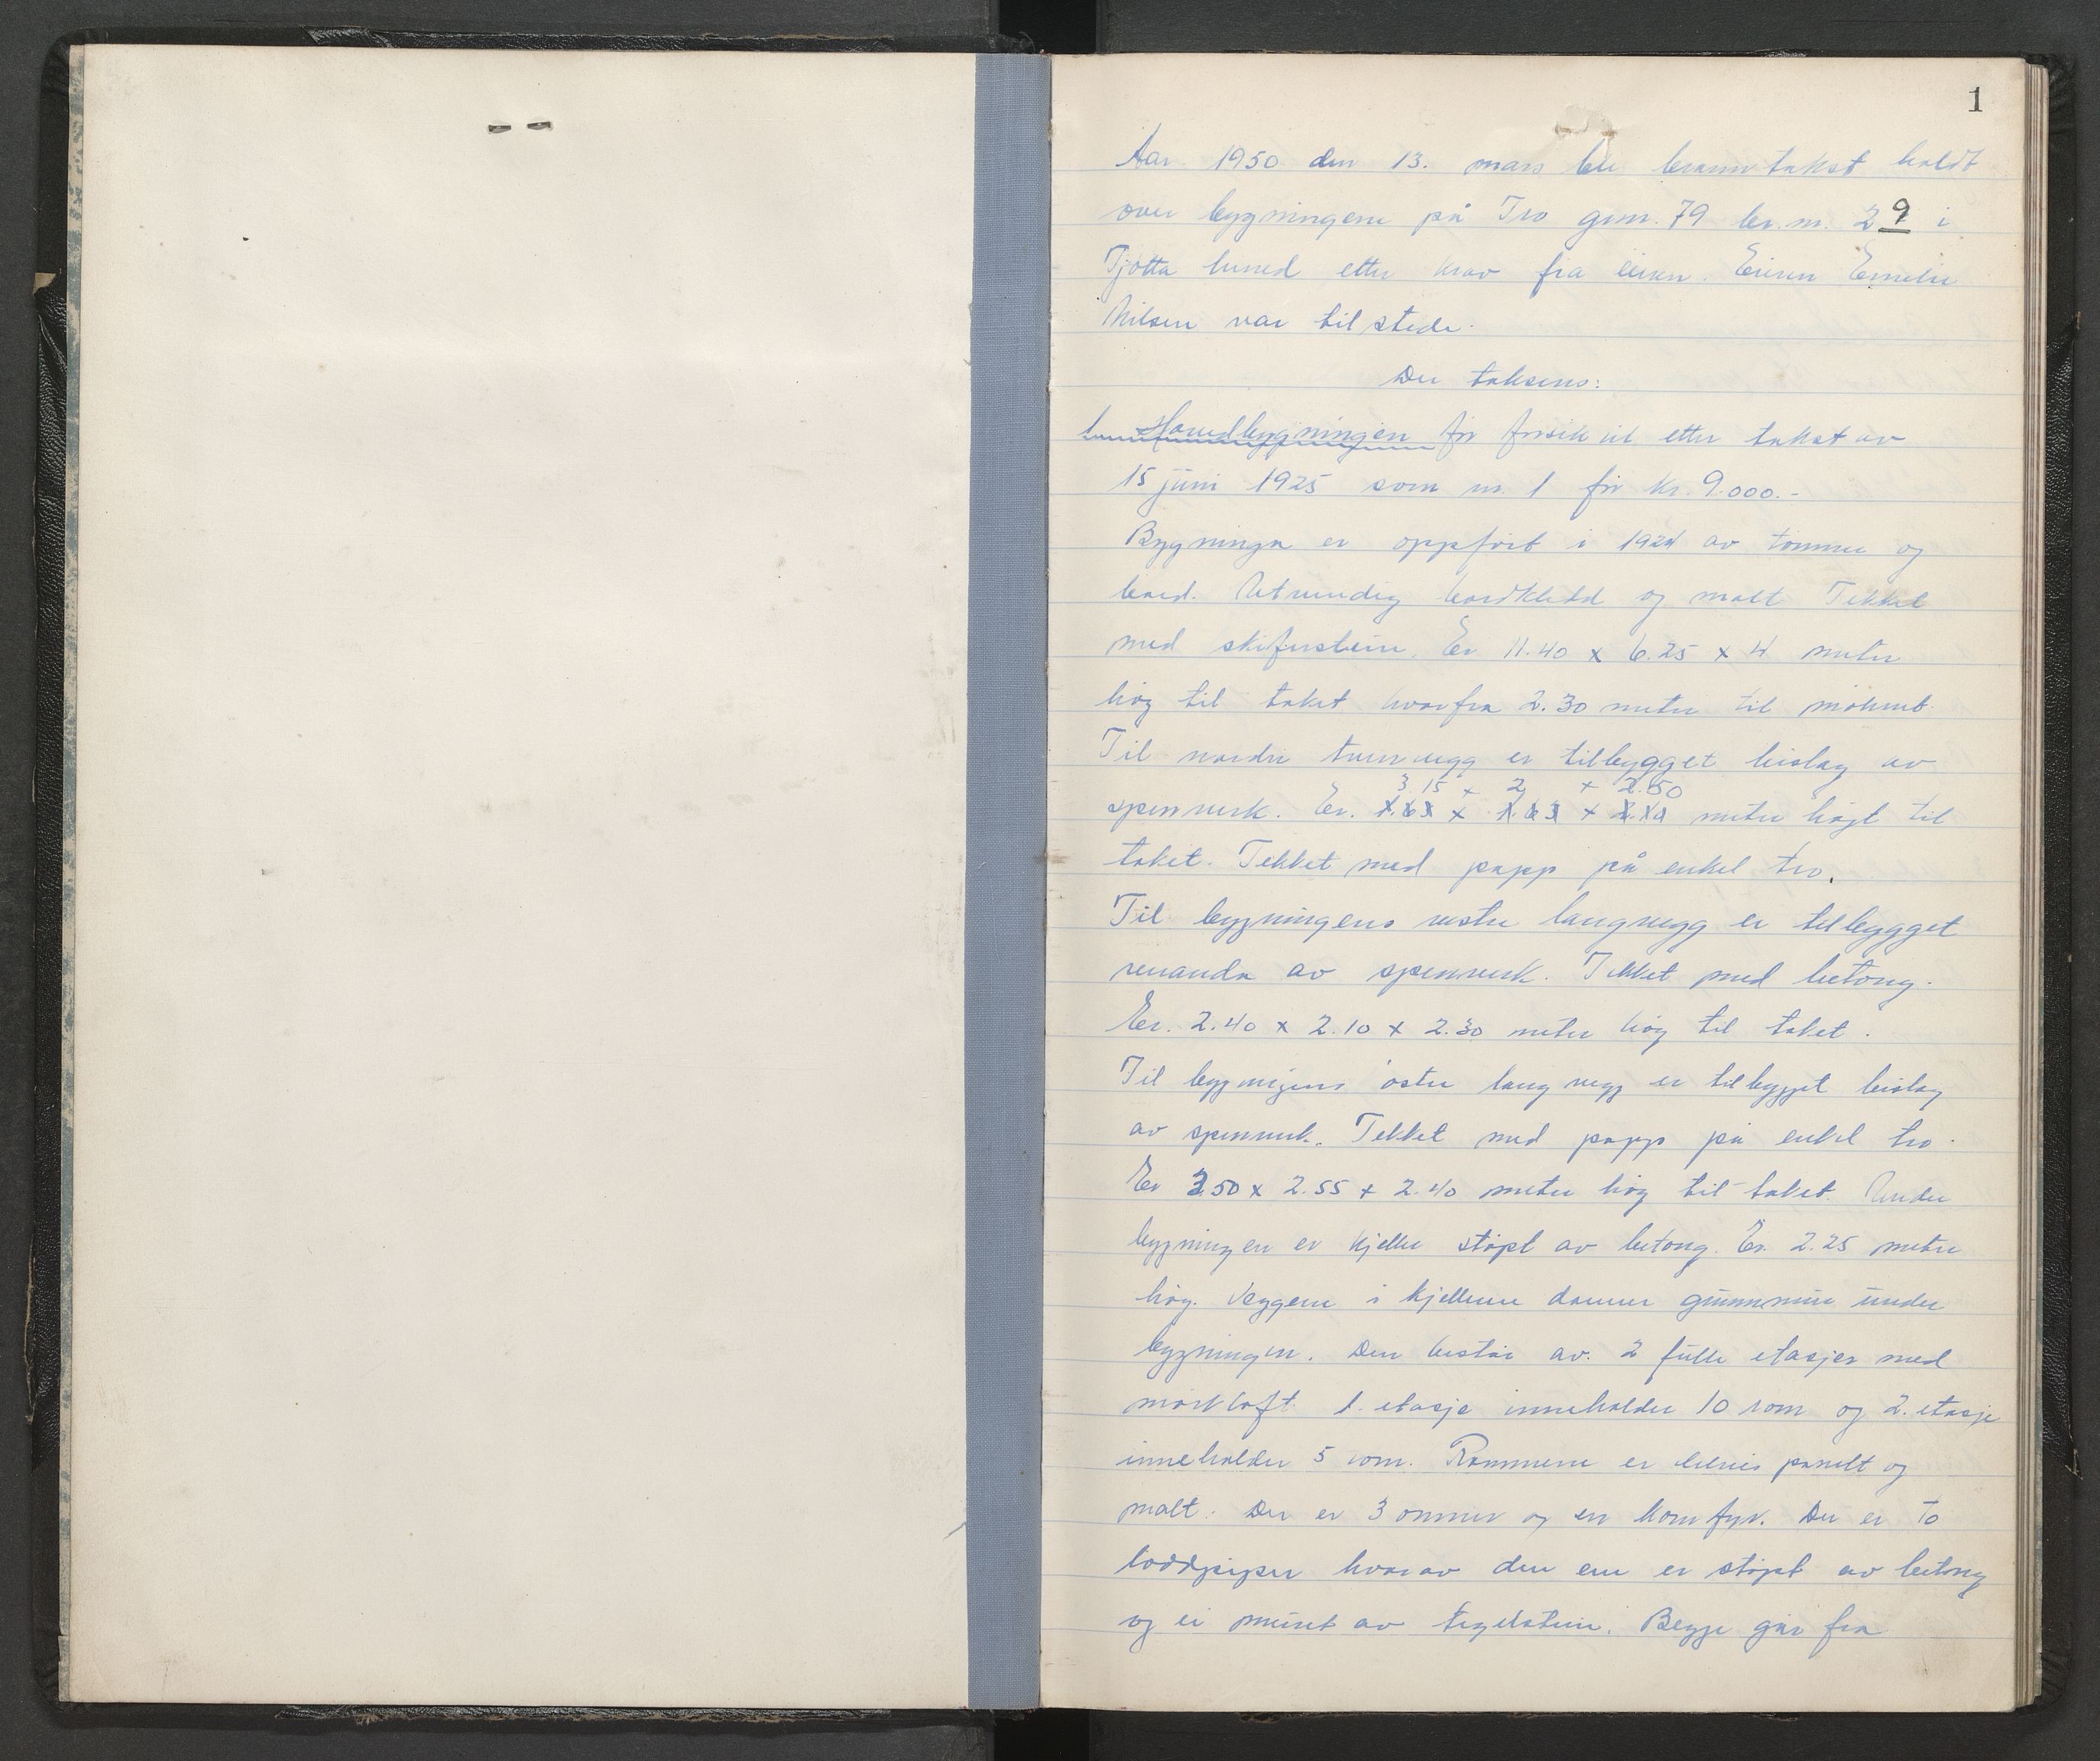 1
Aar 1950 den 13. mars ble branntakst holdt
over bygningene på Tro gnr. 79 br. nr. 29 i
Tjøtta herred etter krav fra eieren. Eieren Emelie
Nilsen var tilstede.
Der takseres:
1. Hovedbygningen før forsikret etter takst av
15 juni 1925 som nr. 1 for kr. 9.000.-
Bygninga er oppført i 1924 av tømmer og
bord. Utvendig bordkledd og malt. Tekket
med skiferstein. Er 11.40 x 6.25 x 4 meter
høg til taket hvorfra 2.30 meter til mønet.
Til nordre tverrvegg er tilbygget bislag av
3.15 x 2 x 2.50
spennverk. Er. x x meter høgt til
taket. Tekket med papp på enkel tro.
Til bygningens vestre langvegg er tilbygget
veranda av spennverk. Tekket med betong.
Er. 2.40 x 2.10 x 2.30 meter høg til taket.
Til bygningens østre langvegg er tilbygget bislag
av spennverk. Tekket med papp på enkel tro.
Er 3.50 x 2.55 x 2.40 meter høg til taket. Under
bygningen er kjeller støpt av betong. Er. 2.25 meter
høg. Veggene i kjelleren danner grunnmur under
bygningen. Den består av 2 fulle etasjer med
mørkloft. 1. etasje inneholder 10 rom og 2. etasje
inneholder 5 rom. Rommene er delvis panelt og
malt. Der er 3 ovner og en komfyr. Der er to
loddpiper hvorav den ene er støpt av betong
og ei muret av teglstein. Begge går fra